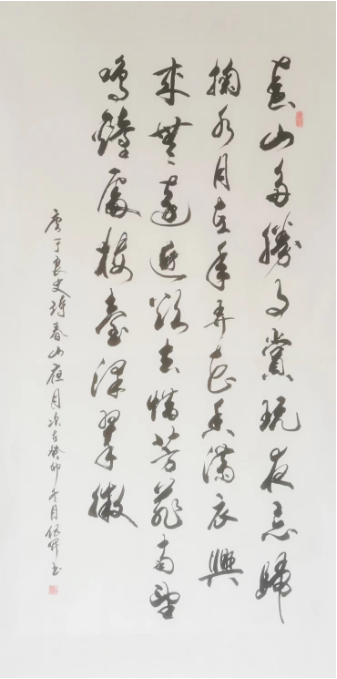 春山多勝事賞玩夜忘歸
掬水月在手弄花香滿衣興
來無遠近欲去惜芳菲南望
鳴鐘處樓臺深翠微
唐于良史詩春山夜月癸卯冬月书